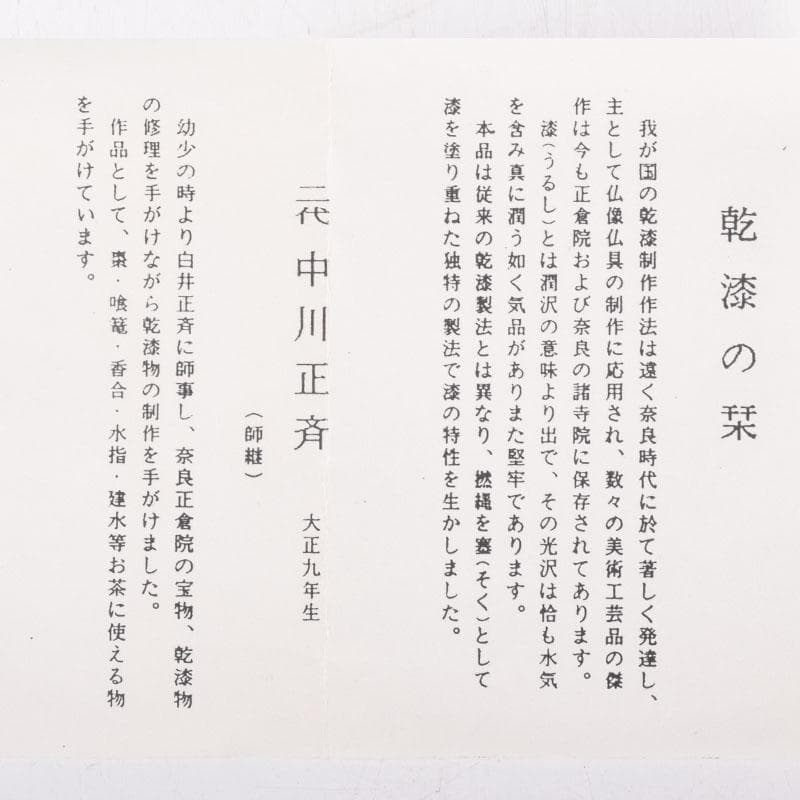 乾漆の栞
我が国の乾漆制作作法は遠く奈良時代に於て著しく発達し、
主として仏像仏具の制作に応用され、数々の美術工芸品の傑
作は今も正倉院および奈良の諸寺院に保存されてあります。
漆(うるし)とは潤沢の意味より出で、その光沢は恰も水気
を含み真に潤う如く気品がありまた堅牢であります。
本品は従来の乾漆製法とは異なり、撚縄を塞(そく)として
漆を塗り重ねた独特の製法で漆の特性を生かしました。
二代 中川正斉 大正九年生
(師継)
幼少の時より白井正斉に師事し、奈良正倉院の宝物、乾漆物
の修理を手がけながら乾漆物の制作を手がけました。
作品として、棗・喰篭・香合・水指・建水等お茶に使える物
を手がけています。